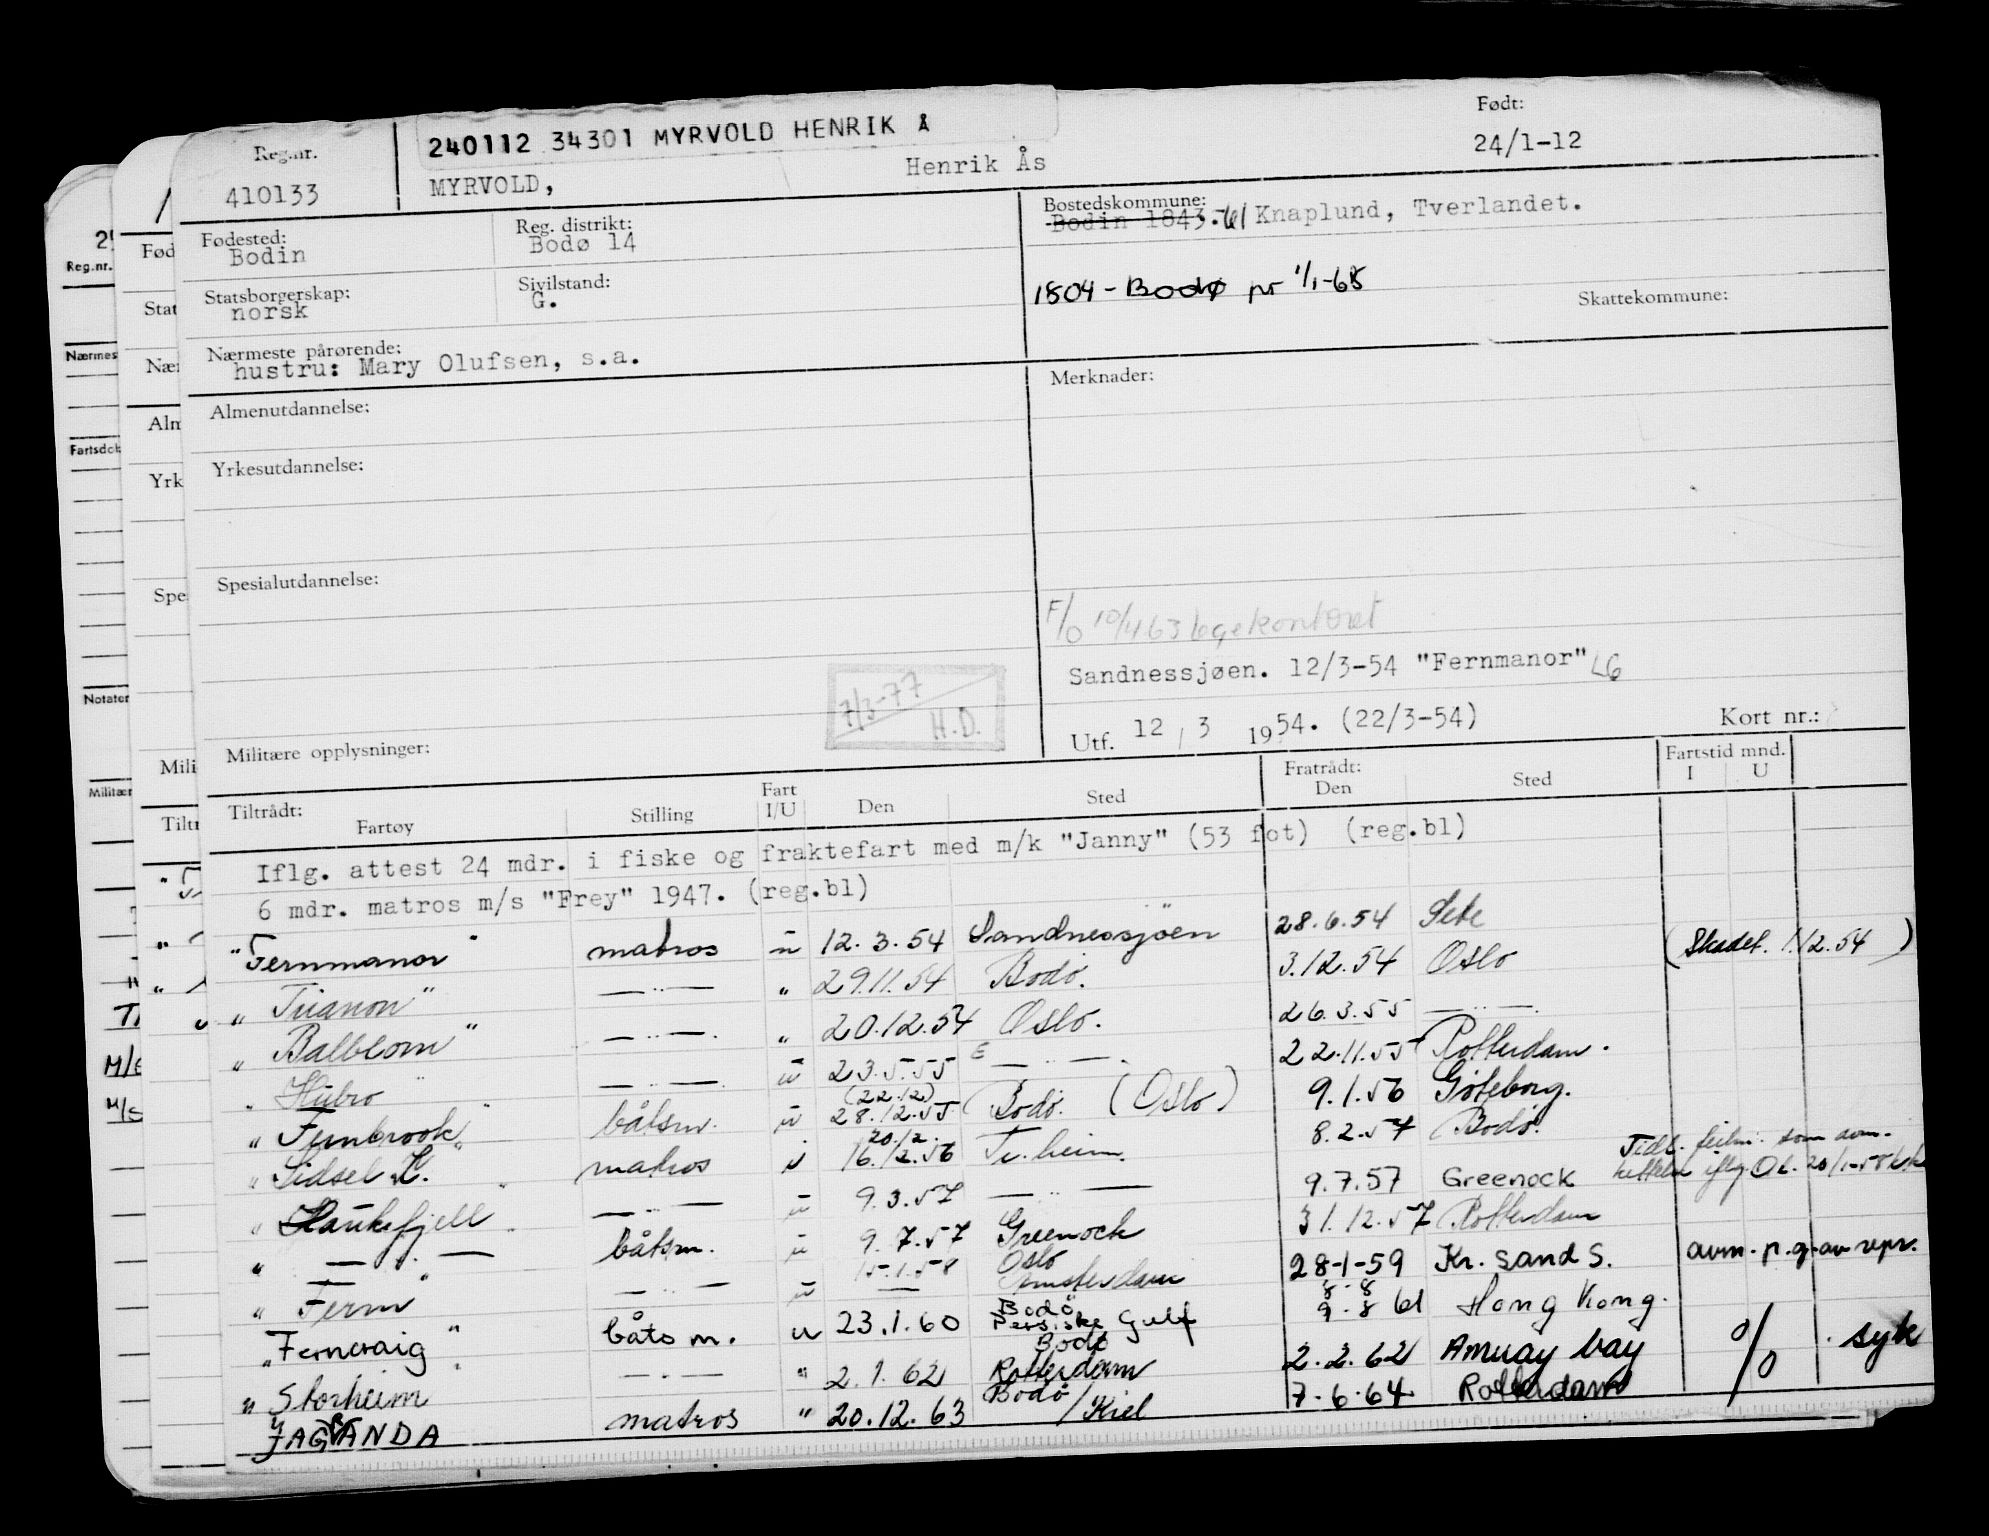 Reg.nr.
410133
240112 34301 MYRVOLD HENRIK Å
MYRVOLD, Henrik Ås
Født:
24/1-12
Fødested:
Bodin
Reg. distrikt:
Bodø 14
Bostedskommune:
Bodin 1843. Knaplund, Tverlandet.
Statsborgerskap:
norsk
Sivilstand:
G.
1804 - Bodø pr 1/1-68
Skattekommune:
Nærmeste pårørende:
hustru: Mary Olufsen, s.a.
Almenutdannelse:
Merknader:
Yrkesutdannelse:
Spesialutdannelse:
F/O 10/4 63 legekontoret
Sandnessjøen. 12/3-54 "Fernmanor" LG
7/3-77
H.D.
Utf. 12 / 3 1954. (22/3-54)
Kort nr.:
Militære opplysninger:
Tiltrådt:
Fartøy Stilling Fart I/U Den Sted Fratrådt: Den Sted Fartstid mnd. I U
Iflg. attest 24 mdr. i fiske og fraktefart med m/k "Janny" (53 fot) (reg.bl)
6 mdr. matros m/s "Frey" 1947. (reg.bl)
"Fernmanor" matros u 12.3.54 Sandnessjøen 28.6.54 Sete
"Trianon" —"— " 29.11.54 Bodø. 3.12.54 Oslo (Skadet. 1.12.54)
"Balblom" —"— " 20.12.54 Oslo. 26.3.55 —"—
"Hubro" —"— u 23.5.55 —"— 22.11.55 Rotterdam.
"Fernbrook" båtsm. u (22.12) 28.12.55 Bodø. (Oslo) 9.1.56 Göteborg.
"Sidsel L." matros u 20.12. 16.12.56 Tr.heim. 8.2.57 Bodø.
"Haukefjell" —"— u 9.3.57 —"— 9.7.57 Greenock
"—"— båtsm. u 9.7.57 Greenock 31.12.57 Rotterdam
"Ferm" —"— u 15.1.58 Oslo Amsterdam 28-1-59 Kr. sand S. avm. p.g.av repr.
"Ferncraig" båtsm. u 23.1.60 Bodø Persiske Gulf 8-8 9-8 61 Hong Kong.
"Storheim" —"— " 2.1.62 Bodø Rotterdam 2.2.62 Amuay bay % syk
"JAGRANDA matros " 20.12.63 Bodø/Kiel 7.6.64 Rotterdam